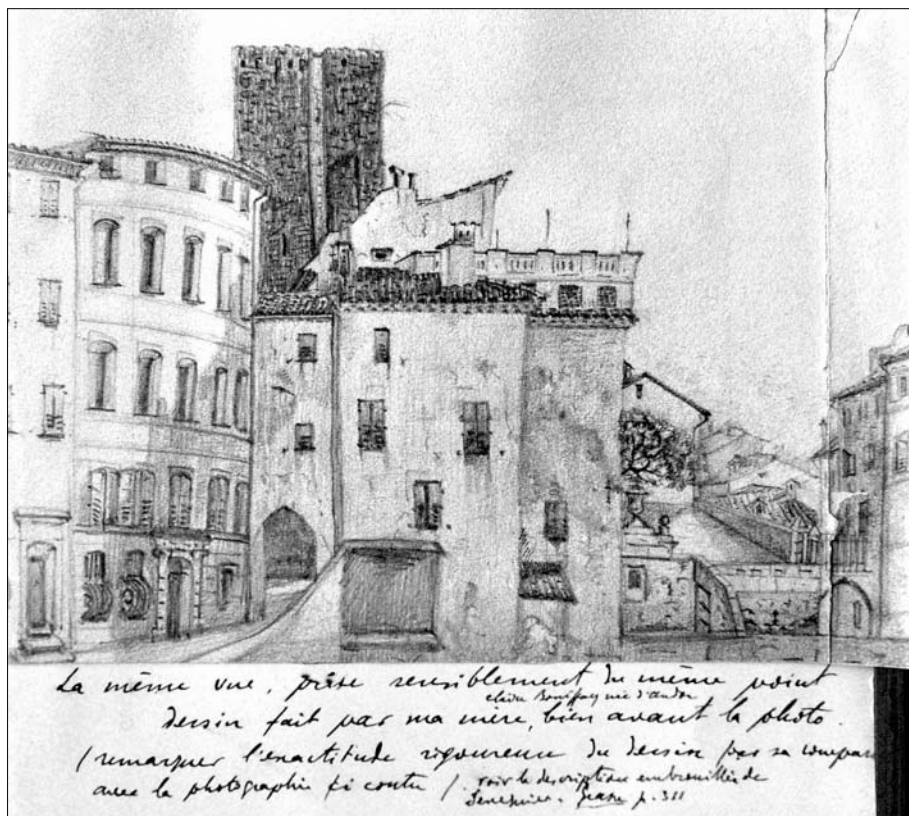 La même vue, prise sensiblement du même point
claire Bonifay née d'andon
dessin fait par ma mère, bien avant la photo.
(remarquer l'exactitude rigoureuse du dessin par sa compar
avec la photographie ci contre). voir la description embrouillée de
Senequier. Grasse p. 311